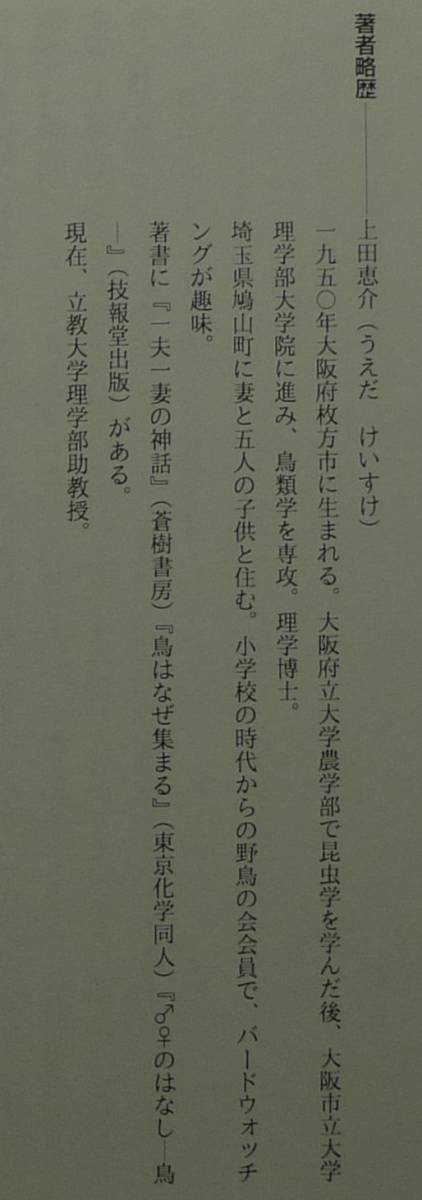 著者略歴――上田恵介（うえだ　けいすけ）
一九五〇年大阪府枚方市に生まれる。大阪府立大学農学部で昆虫学を学んだ後、大阪市立大学
理学部大学院に進み、鳥類学を専攻。理学博士。
埼玉県鳩山町に妻と五人の子供と住む。小学校の時代からの野鳥の会会員で、バードウォッチ
ングが趣味。
著書に『一夫一妻の神話』（蒼樹書房）『鳥はなぜ集まる』（東京化学同人）『♂♀のはなし―鳥
―』（技報堂出版）がある。
現在、立教大学理学部助教授。